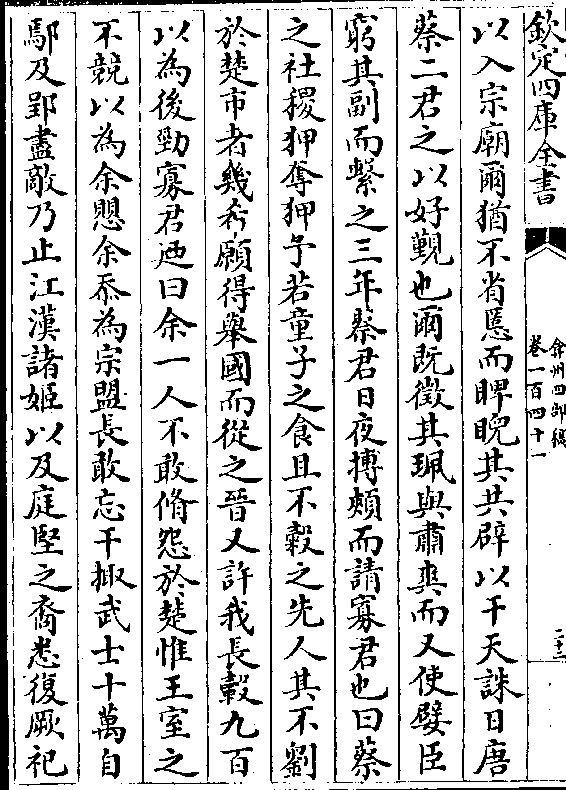 欽定四庫全書
弇州四部稿
卷一百四十一
二十二
以入宗廟爾猶不省慝而睥睨其共辟以干天誅日唐
蔡二君之以好覲也爾既徵其珮與肅爽而又使嬖臣
窮其副而繫之三年蔡君日夜搏頰而請寡君也曰蔡
之社稷狎奪狎予若童子之食且不榖之先人其不劉
於楚市者幾希願得舉國而從之晉又許我長轂九百
以為後勁寡君迺曰余一人不敢脩怨於楚惟王室之
不競以為余愳余忝為宗盟長敢忘干掫武士十萬自
鄢及郢盡敵乃止江漢諸姬以及庭堅之裔悉復厥祀